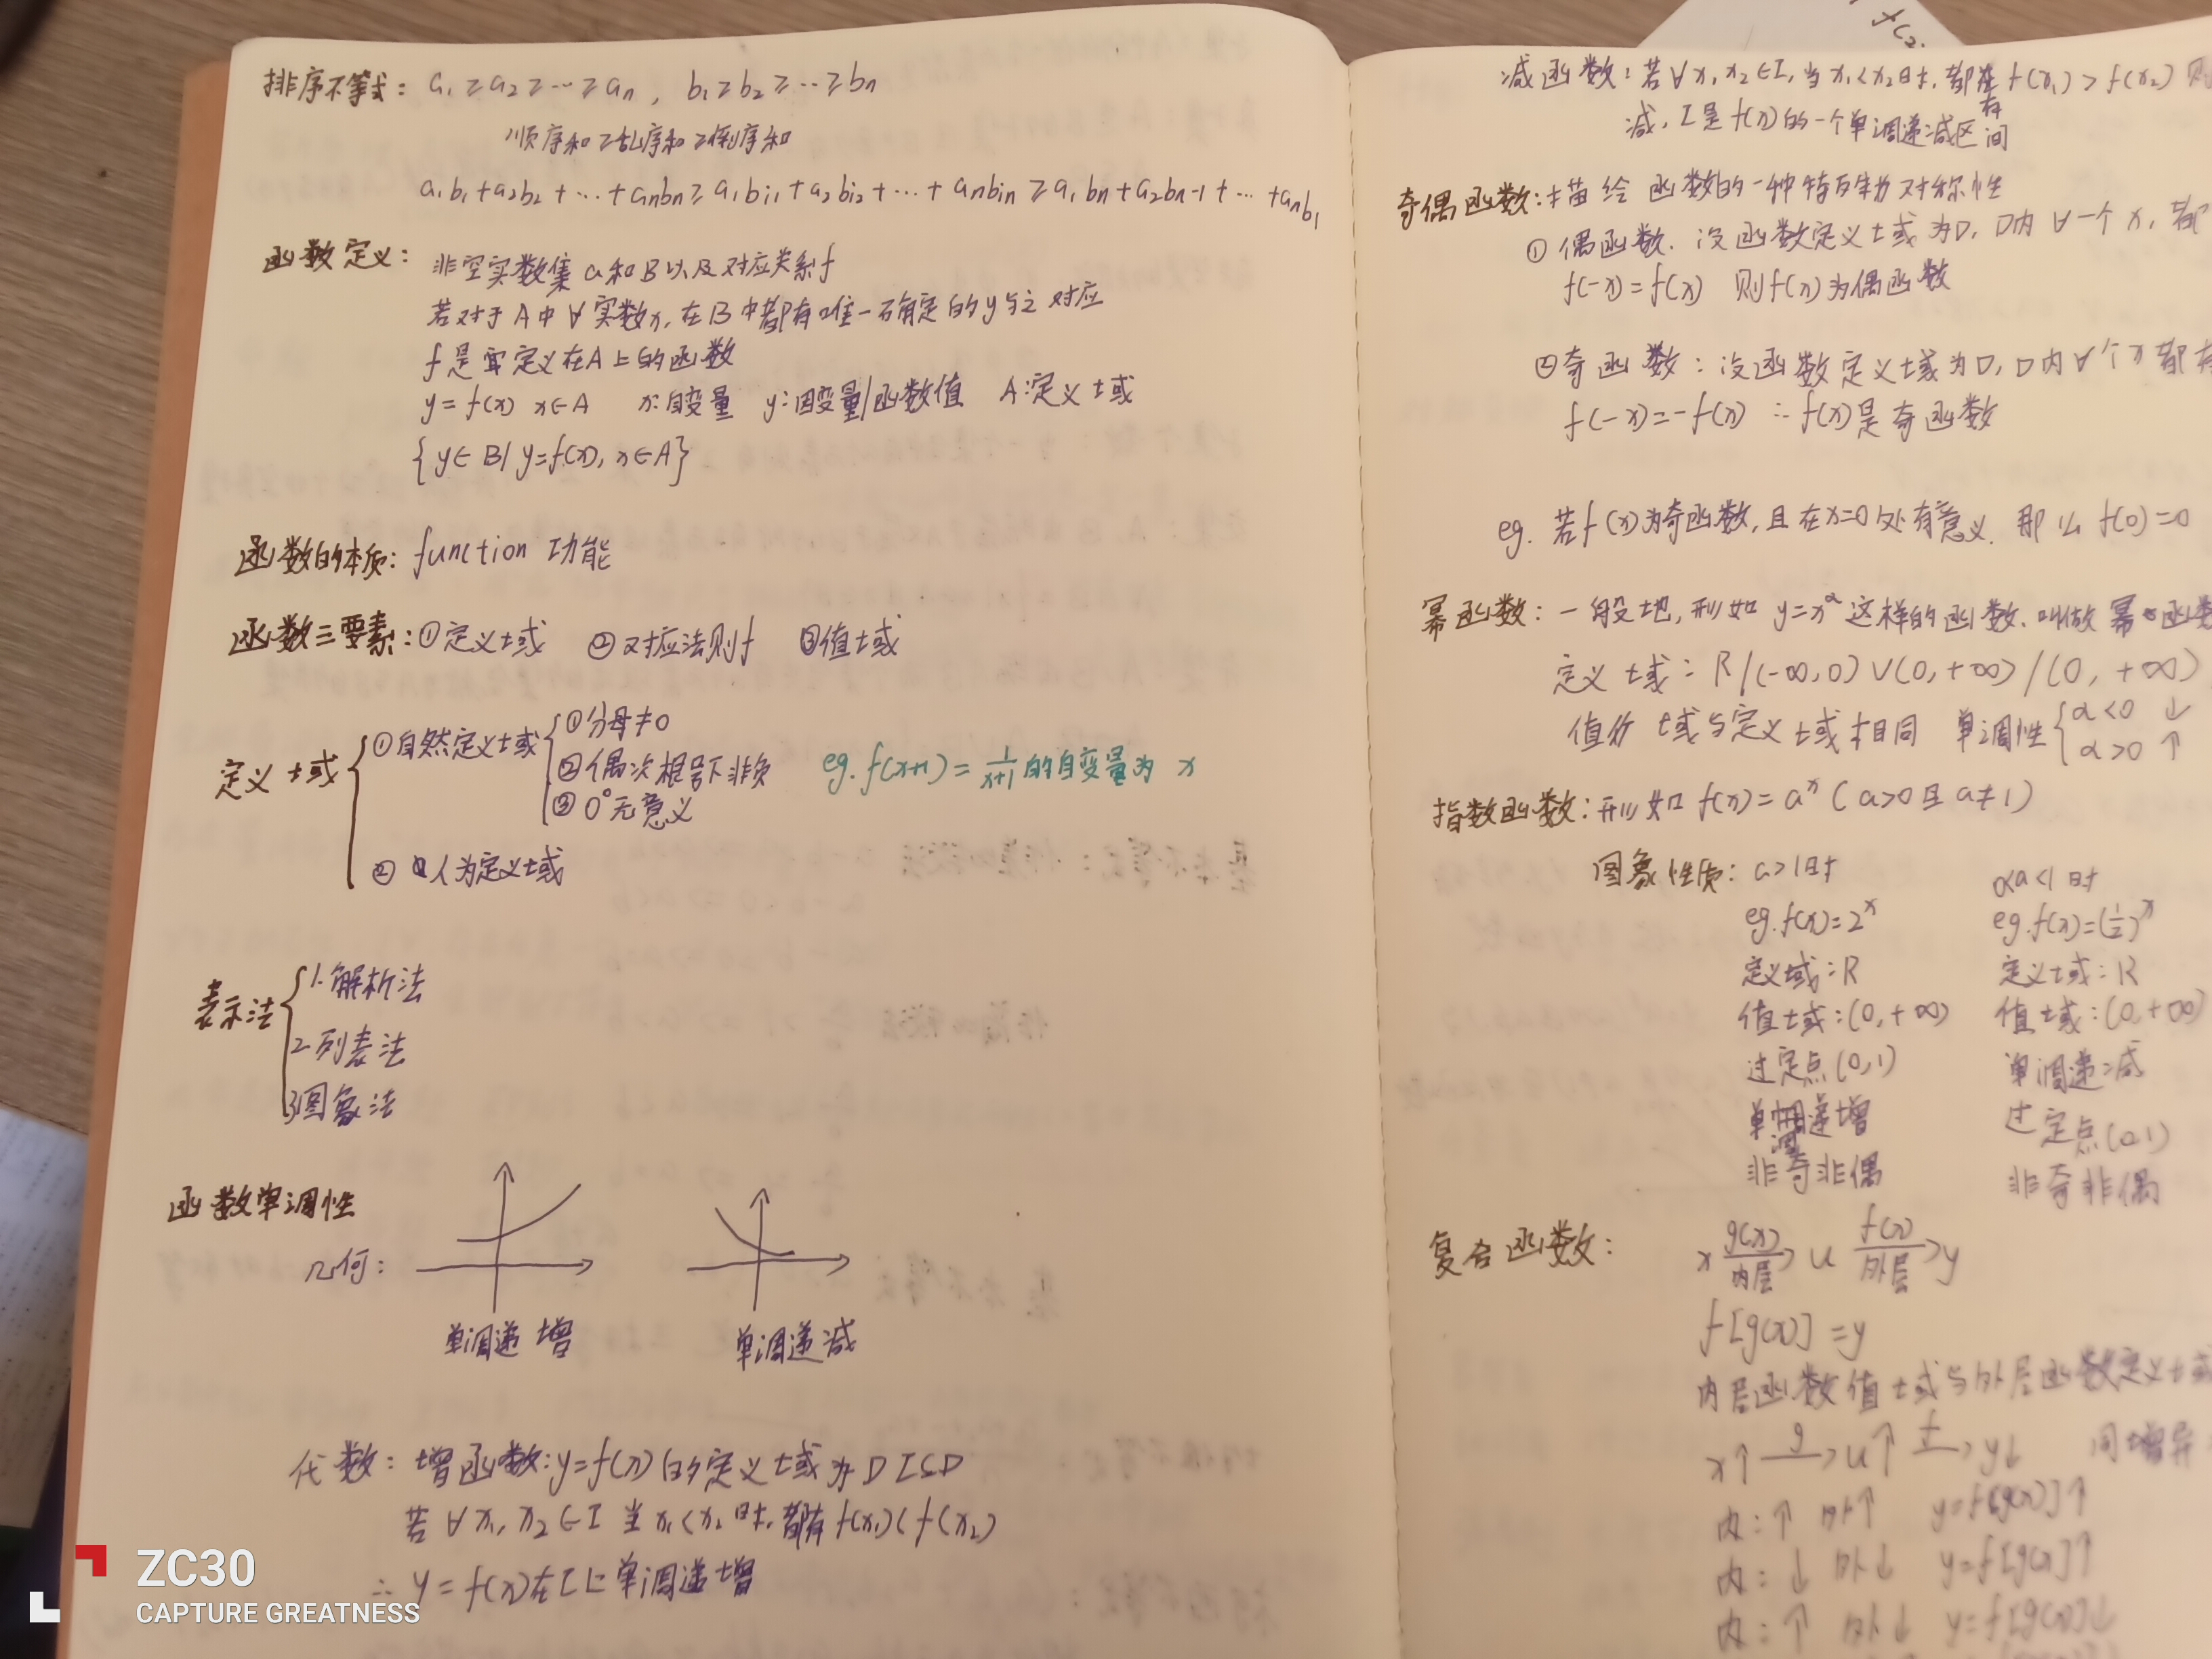 排序不等式: a₁≥a₂≥…≥aₙ, b₁≥b₂≥…≥bₙ
顺序和≥乱序和≥倒序和
a₁b₁+a₂b₂+…+aₙbₙ≥a₁bi₁+a₂bi₂+…+aₙbiₙ≥a₁bₙ+a₂bₙ₋₁+…+aₙb₁
函数定义: 非空实数集a和B以及对应关系f
若对于A中∀实数x,在B中都有唯一确定的y与之对应
f是定义在A上的函数
y=f(x) x∈A x:自变量 y:因变量/函数值 A:定义域
{y∈B|y=f(x),x∈A}
函数的本质: function 功能
函数三要素:①定义域 ②对应法则f ③值域
定义域
①自然定义域
①分母≠0
②偶次根号下非负
③0⁰无意义
eg.f(x+1)=1/(x+1)的自变量为 x
②人为定义域
表示法
1.解析法
2.列表法
3图象法
函数单调性
几何:
单调递增 单调递减
代数: 增函数:y=f(x)的定义域为D I⊆D
若∀x₁,x₂∈I 当x₁<x₂时,都有f(x₁)<f(x₂)
∴y=f(x)在I上单调递增
f(2
减函数:若∀x₁x₂∈I,当x₁<x₂时,都有f(x₁)>f(x₂)则
减,I是f(x)的一个单调递减区间
奇偶函数:描绘函数的一种特有的对称性
①偶函数.设函数定义域为D,D内∀一个x,都
f(-x)=f(x) 则f(x)为偶函数
②奇函数:设函数定义域为D,D内∀个x都有
f(-x)=-f(x) ∴f(x)是奇函数
eg.若f(x)为奇函数,且在x=0处有意义.那么f(0)=0
幂函数:一般地,形如y=x^α这样的函数.叫做幂函数
定义域:R/(-∞,0)∪(0,+∞)/(0,+∞)
值域与定义域相同 单调性
α<0 ↓
α>0 ↑
指数函数:形如f(x)=aˣ(a>0且a≠1)
图象性质: a>1时
eg.f(x)=2ˣ
定义域:R
值域:(0,+∞)
过定点(0,1)
单调递增
非奇非偶
0<a<1时
eg.f(x)=(1/2)ˣ
定义域:R
值域:(0,+∞)
单调递减
过定点(0,1)
非奇非偶
复合函数: x g(x)/内层→u f(x)/外层→y
f[g(x)]=y
内层函数值域与外层函数定义域
x↑ g→ u↑ f→ y↓ 同增异
内:↑ 外↑ y=f[g(x)]↑
内:↓ 外↓ y=f[g(x)]↑
内:↑ 外↓ y=f[g(x)]↓
ZC30
CAPTURE GREATNESS